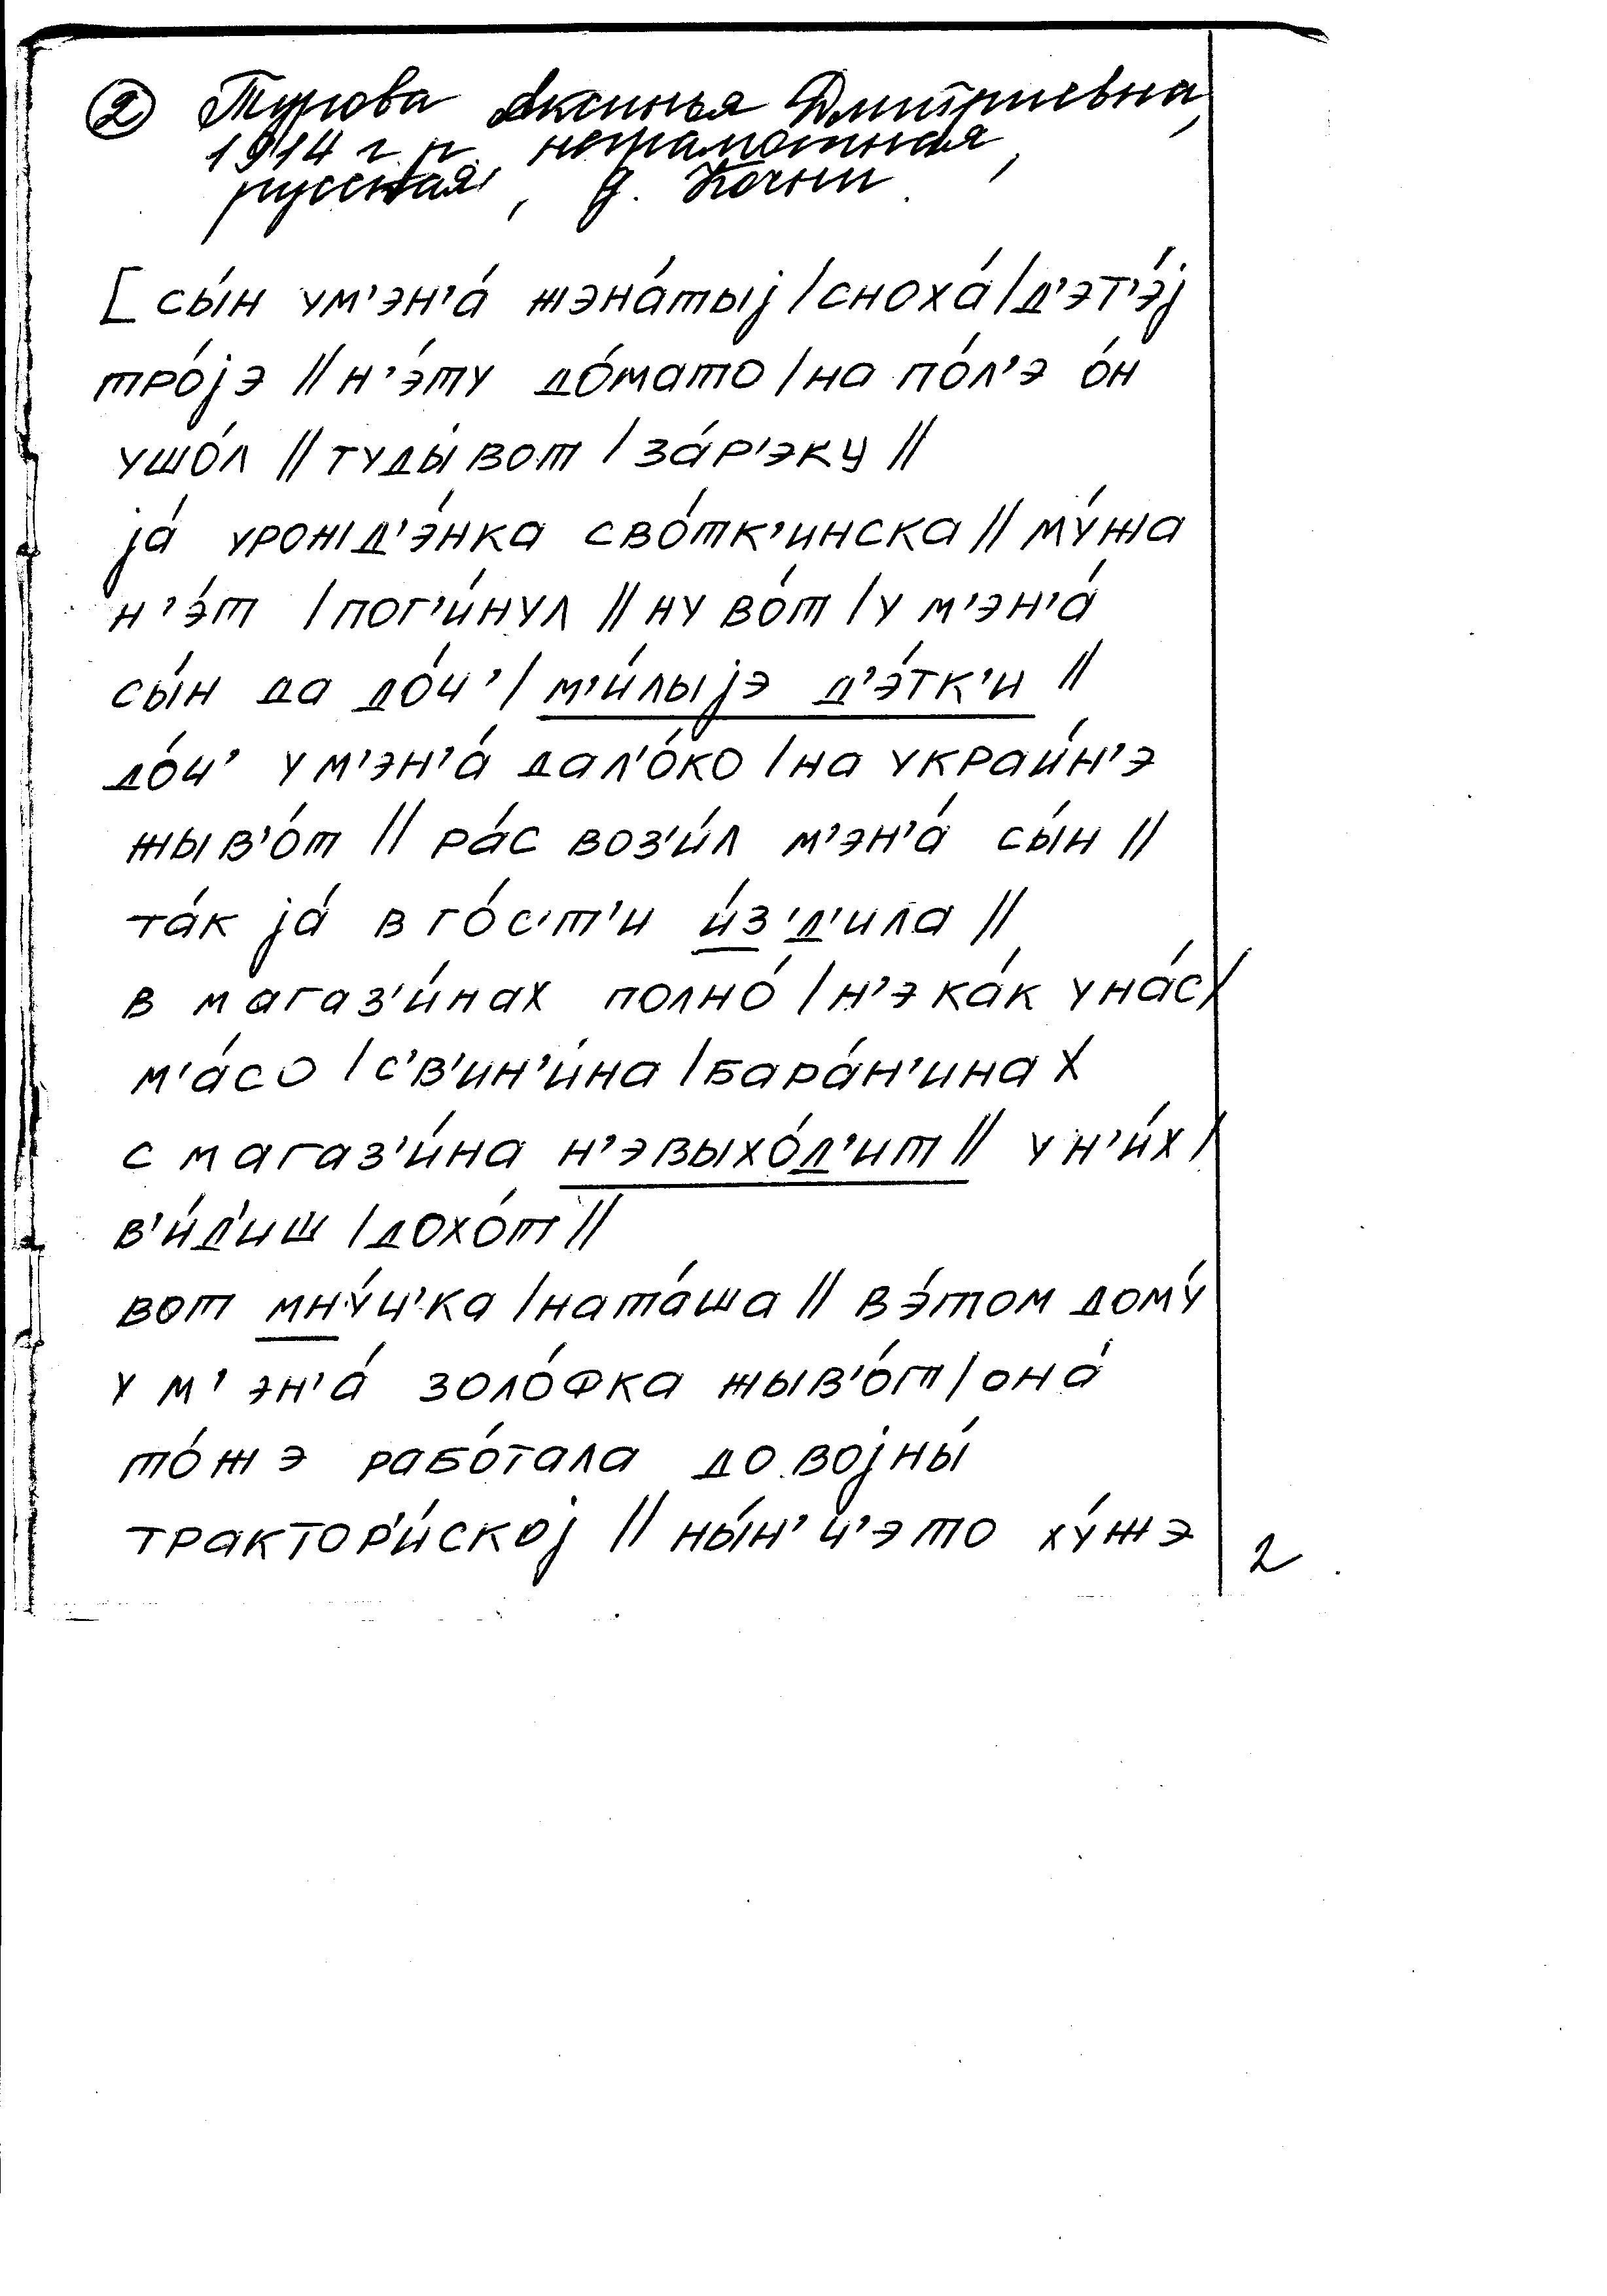 ② Турова Аксинья Дмитриевна,
1914 г.р., неграмотная,
русская, д. Кочни.
[сы́н ум'эн'а́ жэна́тыj/сноха́/д'эт'э́j
тро́jэ // н'э́ту до́мато /на по́л'э о́н
ушо́л // туды́ вот / за́р'эку //
jа́ урожд'э́нка сво́тк'инска // му́жа
н'э́т /пог'и́нул // ну во́т /у м'эн'а́
сы́н да до́ч' / м'и́лыjэ д'э́тк'и //
до́ч' ум'эн'а́ дал'о́ко /на украи́н'э
жыв'о́т // ра́с воз'и́л м'эн'а́ сы́н //
та́к jа́ в го́с'т'и и́з'д'ила //
в магаз'и́нах полно́ /н'э ка́к уна́с/
м'а́со /с'в'ин'и́на /бара́н'ина /
с магаз'и́на н'эвыхо́д'ит // у н'и́х /
в'и́д'иш /дохо́т //
вот мну́ч'ка /ната́ша // вэ́том дому́
у м'эн'а́ золо́фка жыв'о́т/она́
то́жэ рабо́тала до воjны́
трактор'и́скоj // ны́н'ч'это ху́жэ
2